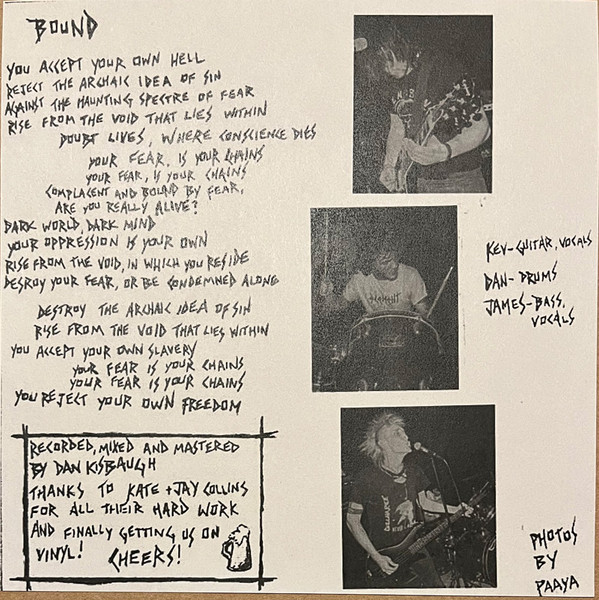 BOUND
YOU ACCEPT YOUR OWN HELL
REJECT THE ARCHAIC IDEA OF SIN
AGAINST THE HAUNTING SPECTRE OF FEAR
RISE FROM THE VOID THAT LIES WITHIN
DOUBT LIVES, WHERE CONSCIENCE DIES
YOUR FEAR, IS YOUR CHAINS
YOUR FEAR, IS YOUR CHAINS
COMPLACENT AND BOUND BY FEAR,
ARE YOU REALLY ALIVE?
DARK WORLD, DARK MIND
YOUR OPPRESSION IS YOUR OWN
RISE FROM THE VOID, IN WHICH YOU RESIDE
DESROY YOUR FEAR, OR BE CONDEMNED ALONG
DESTROY THE ARCHAIC IDEA OF SIN
RISE FROM THE VOID THAT LIES WITHIN
YOU ACCEPT YOUR OWN SLAVERY
YOUR FEAR IS YOUR CHAINS
YOUR FEAR IS YOUR CHAINS
YOU REJECT YOUR OWN FREEDOM
RECORDED, MIXED AND MASTERED
BY DAN KISBAUGH
THANKS TO KATE + JAY COLLINS
FOR ALL THEIR HARD WORK
AND FINALLY GETTING US ON
VINYL! CHEERS!
KEV-GUITAR, VOCALS
DAN-DRUMS
JAMES-BASS,
VOCALS
DISCHARGE
PHOTOS
BY
PAAYA